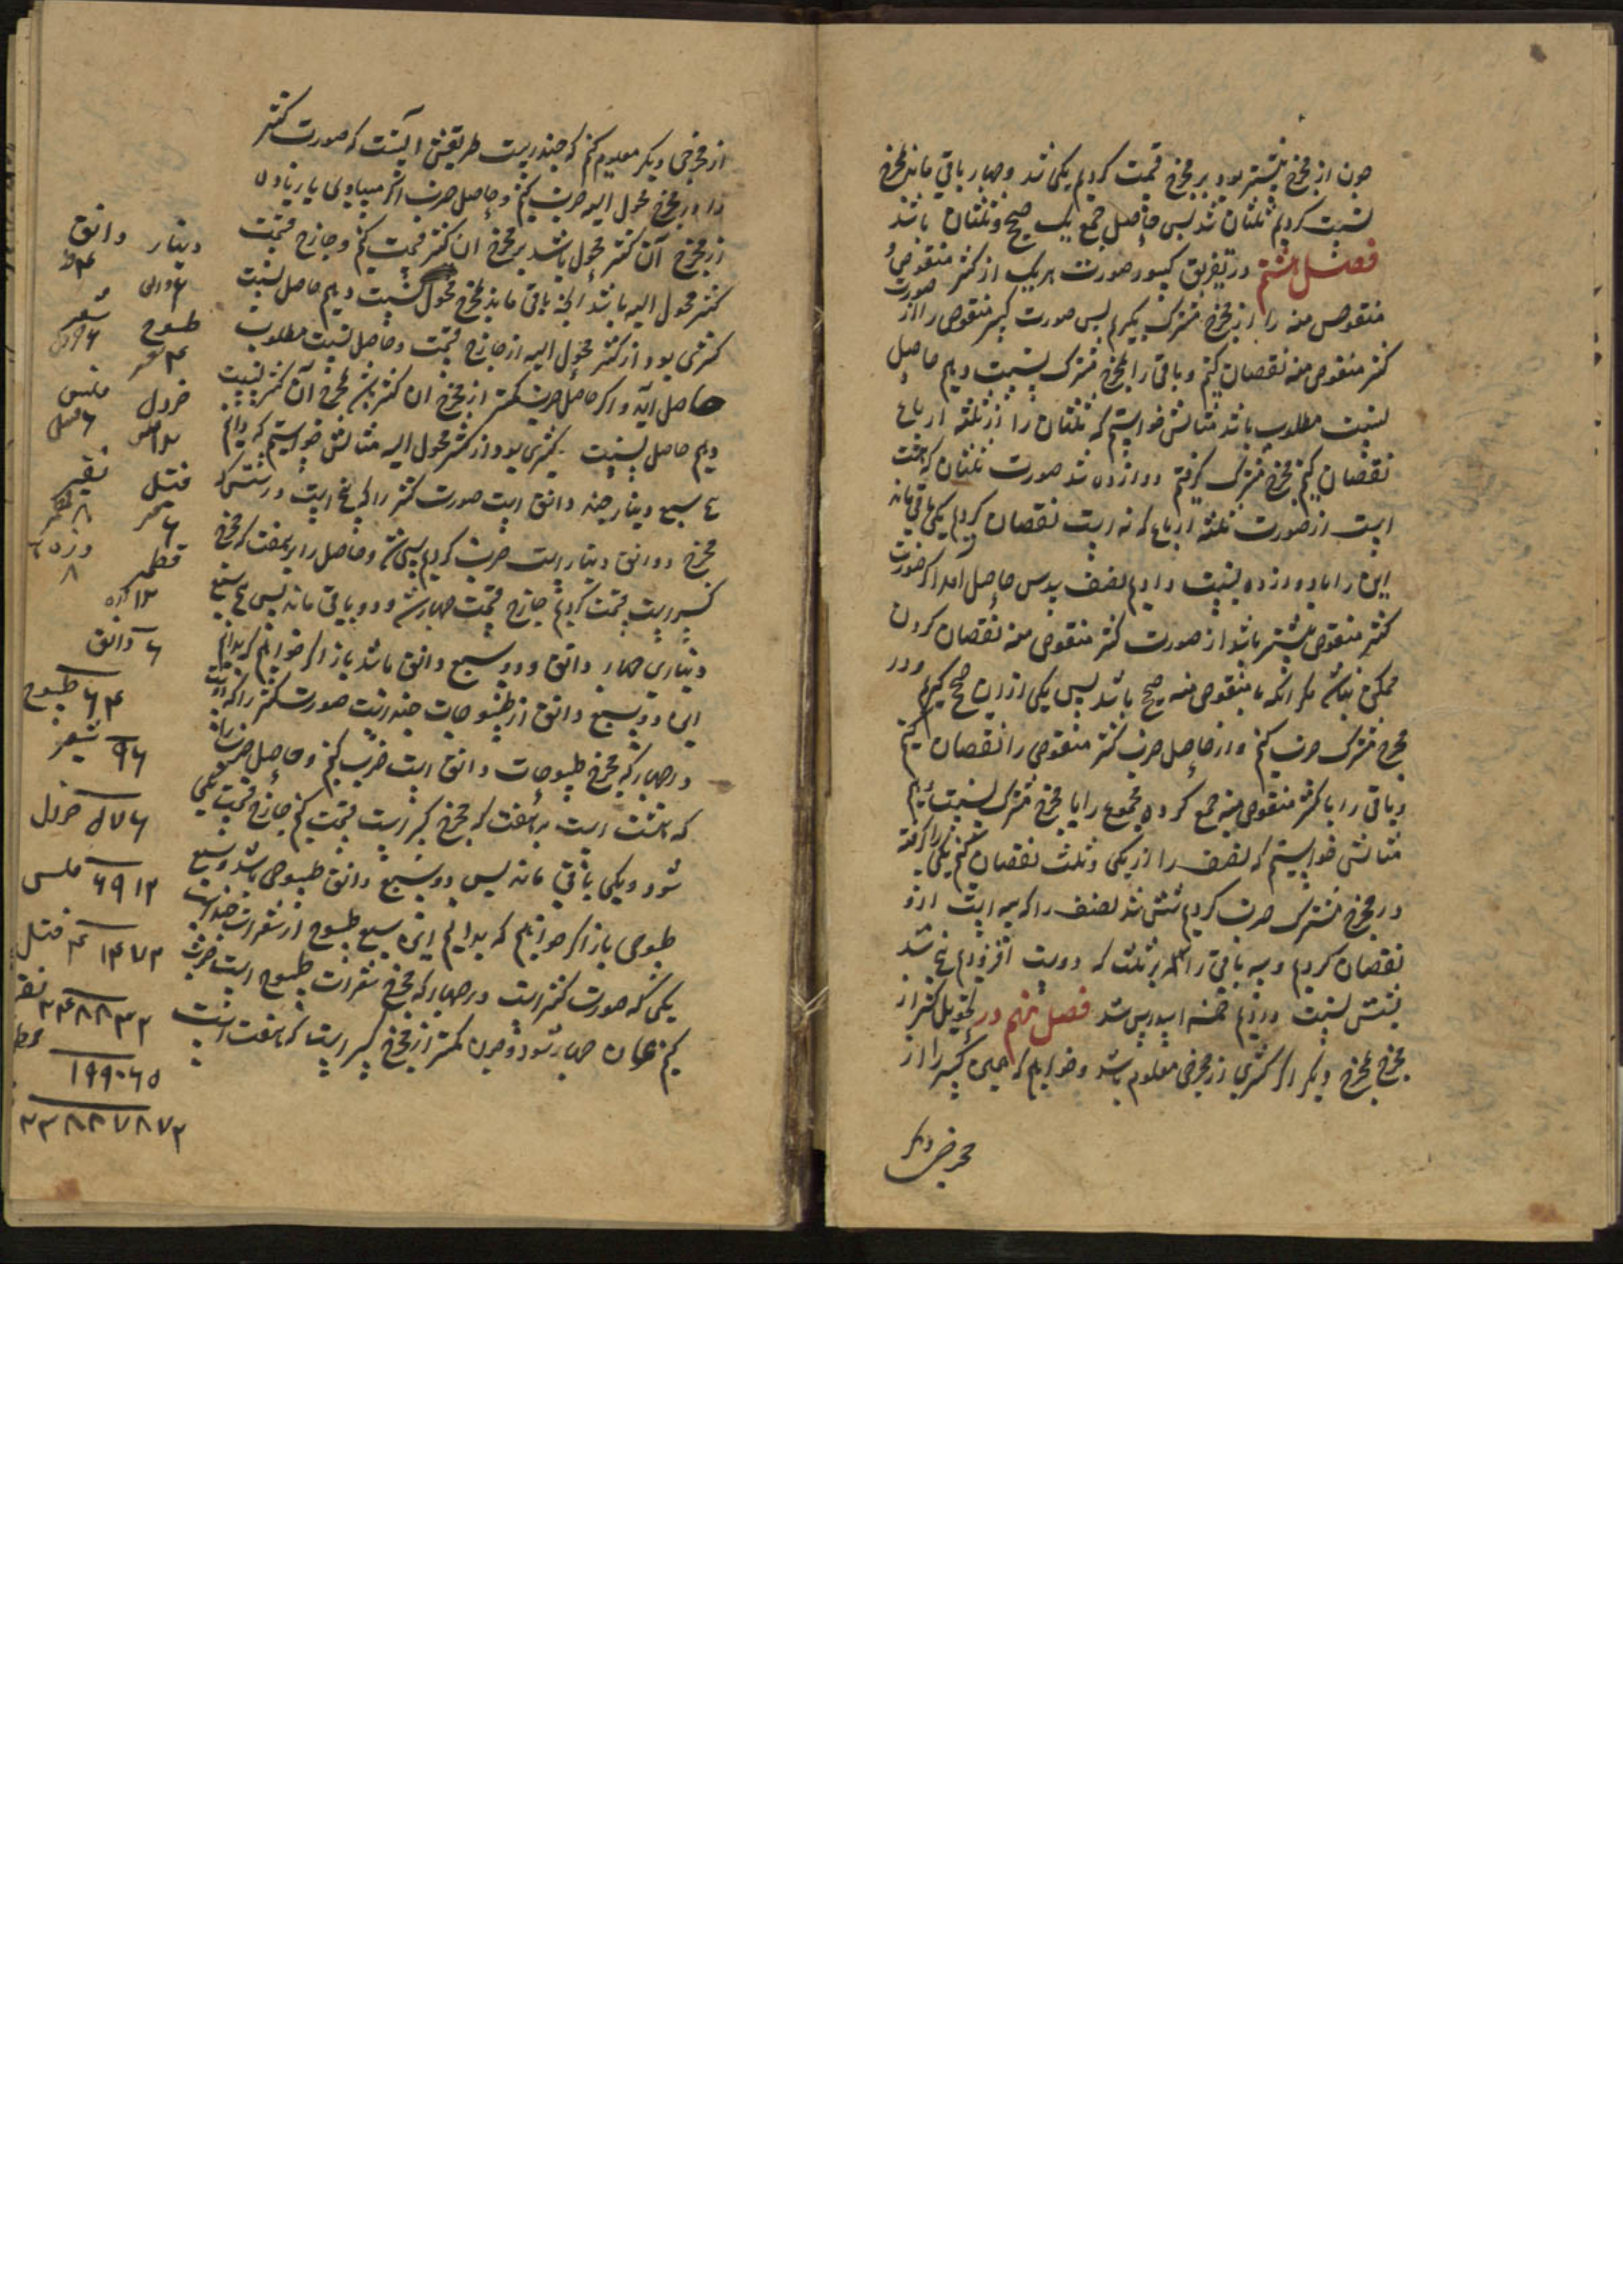 چون از مخرج بیشتر بود بر مخرج قسمت کردیم یکی شد و چهار باقی ماند بمخرج
نسبت کردیم ثلثان شد پس حاصل جمع یک صحیح و ثلثان باشد
فصل هشتم در تفریق کسور صورت هر یک از کسر منقوص و
منقوص منه را از مخرج مشترک بگیریم پس صورت کسر منقوص را از صورت
کسر منقوص منه نقصان کنیم و باقی را بمخرج مشترک نسبت دهیم حاصل
نسبت مطلوب باشد مثالش خواستیم که ثلثان را از ثلثه ارباع
نقصان کنیم مخرج مشترک گرفتیم دوازده شد صورت ثلثان که هشت
است از صورت ثلثه ارباع که نه است نقصان کردیم یکی باقی ماند
این را با دوازده نسبت دادیم نصف سدس حاصل آمد اگر صورت
کسر منقوص بیشتر باشد از صورت کسر منقوص منه نقصان کردن
ممکن نباشد مگر آنکه با منقوص منه صحیح باشد پس یکی از آن صحیح گیریم و در
مخرج مشترک ضرب کنیم و از حاصل ضرب کسر منقوص را نقصان کنیم
و باقی را با کسر منقوص منه جمع کرده مجموع را با مخرج مشترک نسبت دهیم
مثالش خواستیم که نصف را از یکی و ثلث نقصان کنیم یکی را گرفته
در مخرج مشترک ضرب کردیم شش شد نصف را که سه است ازو
نقصان کردیم و سه باقی را بر ثلث که دو است افزودیم پنج شد
بشش نسبت دادیم خمسه اسداس شد فصل نهم در تحویل کسر از
مخرج بمخرج دیگر اگر کسری از مخرجی معلوم باشد و خواهیم که همین کسر را از
مخرجی دیگر
از مخرجی دیگر معلوم کنیم که چند است طریقش آنست که صورت کسر
را در مخرج محول الیه ضرب کنیم و حاصل ضرب اگر مساوی یا زیاده
از مخرج آن کسر محول باشد بر مخرج آن کسر قسمت کنیم و خارج قسمت
کسر محول الیه باشد آنچه باقی ماند بمخرج محول نسبت دهیم حاصل نسبت
کسری بود از کسر محول الیه از خارج قسمت و حاصل نسبت مطلوب
حاصل آید و اگر حاصل ضرب کمتر از مخرج آن کسر بمخرج آن کسر نسبت
دهیم حاصل نسبت کسری بود از کسر محول الیه مثالش خواستیم که بدانیم
سبع دینار چند دانق است صورت کسر را که پنج است در شش که
مخرج دوانق دینار است ضرب کردیم سی شد و حاصل را بر هفت که مخرج
کسر است قسمت کردیم خارج قسمت چهار شد و دو باقی ماند پس پنج سبع
دیناری چهار دانق و دو سبع دانق باشد باز اگر خواهیم که بدانیم
این دو سبع دانق از طسوجات چند است صورت کسر را که دو است
در چهار که مخرج طسوجات دانق است ضرب کنیم و حاصل ضرب را
که هشت است بر هفت که مخرج کسر است قسمت کنیم خارج قسمت یکی
شود و یکی باقی ماند پس دو سبع دانق طسوجی باشد و سبع
طسوجی باز اگر خواهیم که بدانیم این سبع طسوج از شعرات چند است
یکی که صورت کسر است در چهار که مخرج شعرات طسوج است ضرب
کنیم همان چهار شود و چون کمتر از مخرج کسر است که هفت است
دینار دانق
طسوج شعیر
خردل فلس
فتیل نقیر
قطمیر ذره
۶ دانق
۲۴ طسوج
۹۶ شعیر
۵۷۶ خردل
۶۹۱۲ فلس